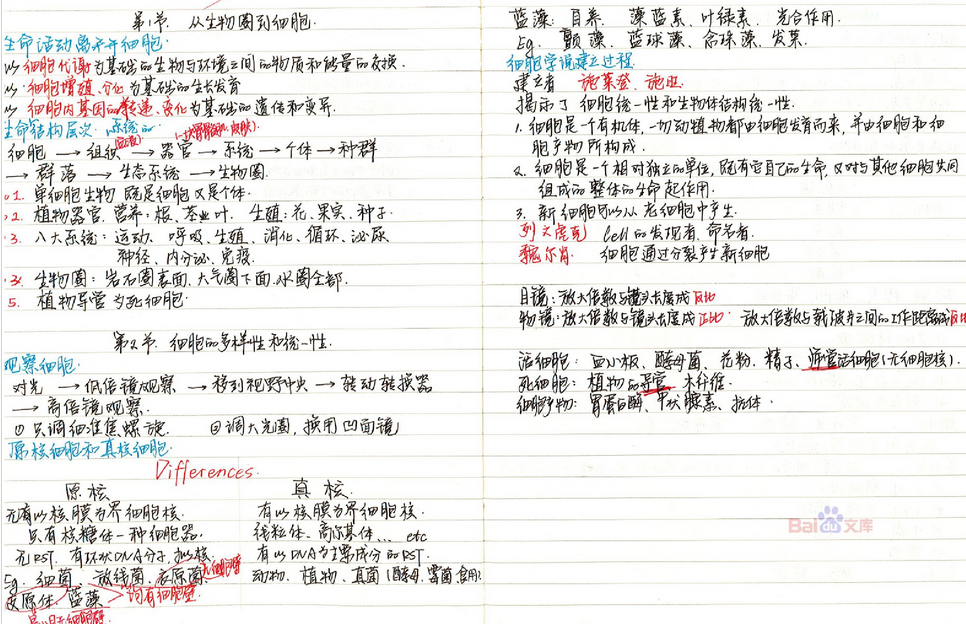 第1节 从生物圈到细胞.
生命活动离不开细胞.
以细胞代谢为基础的生物与环境之间的物质和能量的交换.
以细胞增殖、分化为基础的生长发育
以细胞内基因的传递、变化为基础的遗传和变异.
生命结构层次:系统的
细胞 → 组织 → 器官 → 系统 → 个体 → 种群
→ 群落 → 生态系统 → 生物圈.
1. 单细胞生物 既是细胞又是个体.
2. 植物器官. 营养:根、茎、叶. 生殖:花、果实、种子.
3. 八大系统:运动、呼吸、生殖、消化、循环、泌尿
神经、内分泌、免疫.
生物圈:岩石圈表面、大气圈下面、水圈全部.
5. 植物导管为死细胞.
第2节. 细胞的多样性和统一性.
观察细胞.
对光 → 低倍镜观察 → 移到视野中央 → 转动转换器
→ 高倍镜观察.
① 只调细准焦螺旋. ②调大光圈,换用凹面镜
原核细胞和真核细胞.
Differences.
原核 真核.
无有以核膜为界细胞核. 有以核膜为界细胞核.
只有核糖体一种细胞器. 线粒体、高尔基体... etc
有环状DNA分子,拟核. 有以DNA为主要成分的
Eg. 细菌、放线菌、衣原菌 无细胞壁 动物、植物、真菌(酵母、霉菌、食用
支原体. 蓝藻 均有细胞壁
蓝藻:自养. 藻蓝素、叶绿素. 光合作用.
Eg. 颤藻、蓝球藻、念珠藻、发菜.
细胞学说建立过程.
建立者 施莱登、施旺.
揭示了 细胞统一性和生物体结构统一性.
1. 细胞是一个有机体,一切动植物都由细胞发育而来,并由细胞和细
胞产物所构成.
2. 细胞是一个相对独立的单位,既有它自己的生命,又对与其他细胞共同
组成的整体的生命起作用.
3. 新细胞可以从老细胞中产生.
列文虎克 Cell的发现者,命名者.
魏尔肖. 细胞通过分裂产生新细胞
目镜:放大倍数与镜头长度成反比
物镜:放大倍数与镜头长度成正比. 放大倍数与载玻片之间的工作距离成反比
活细胞:血小板、酵母菌、花粉、精子、筛管活细胞(无细胞核).
死细胞:植物的导管、木纤维.
细胞产物:胃蛋白酶、甲状腺素、抗体.
Baidu文库